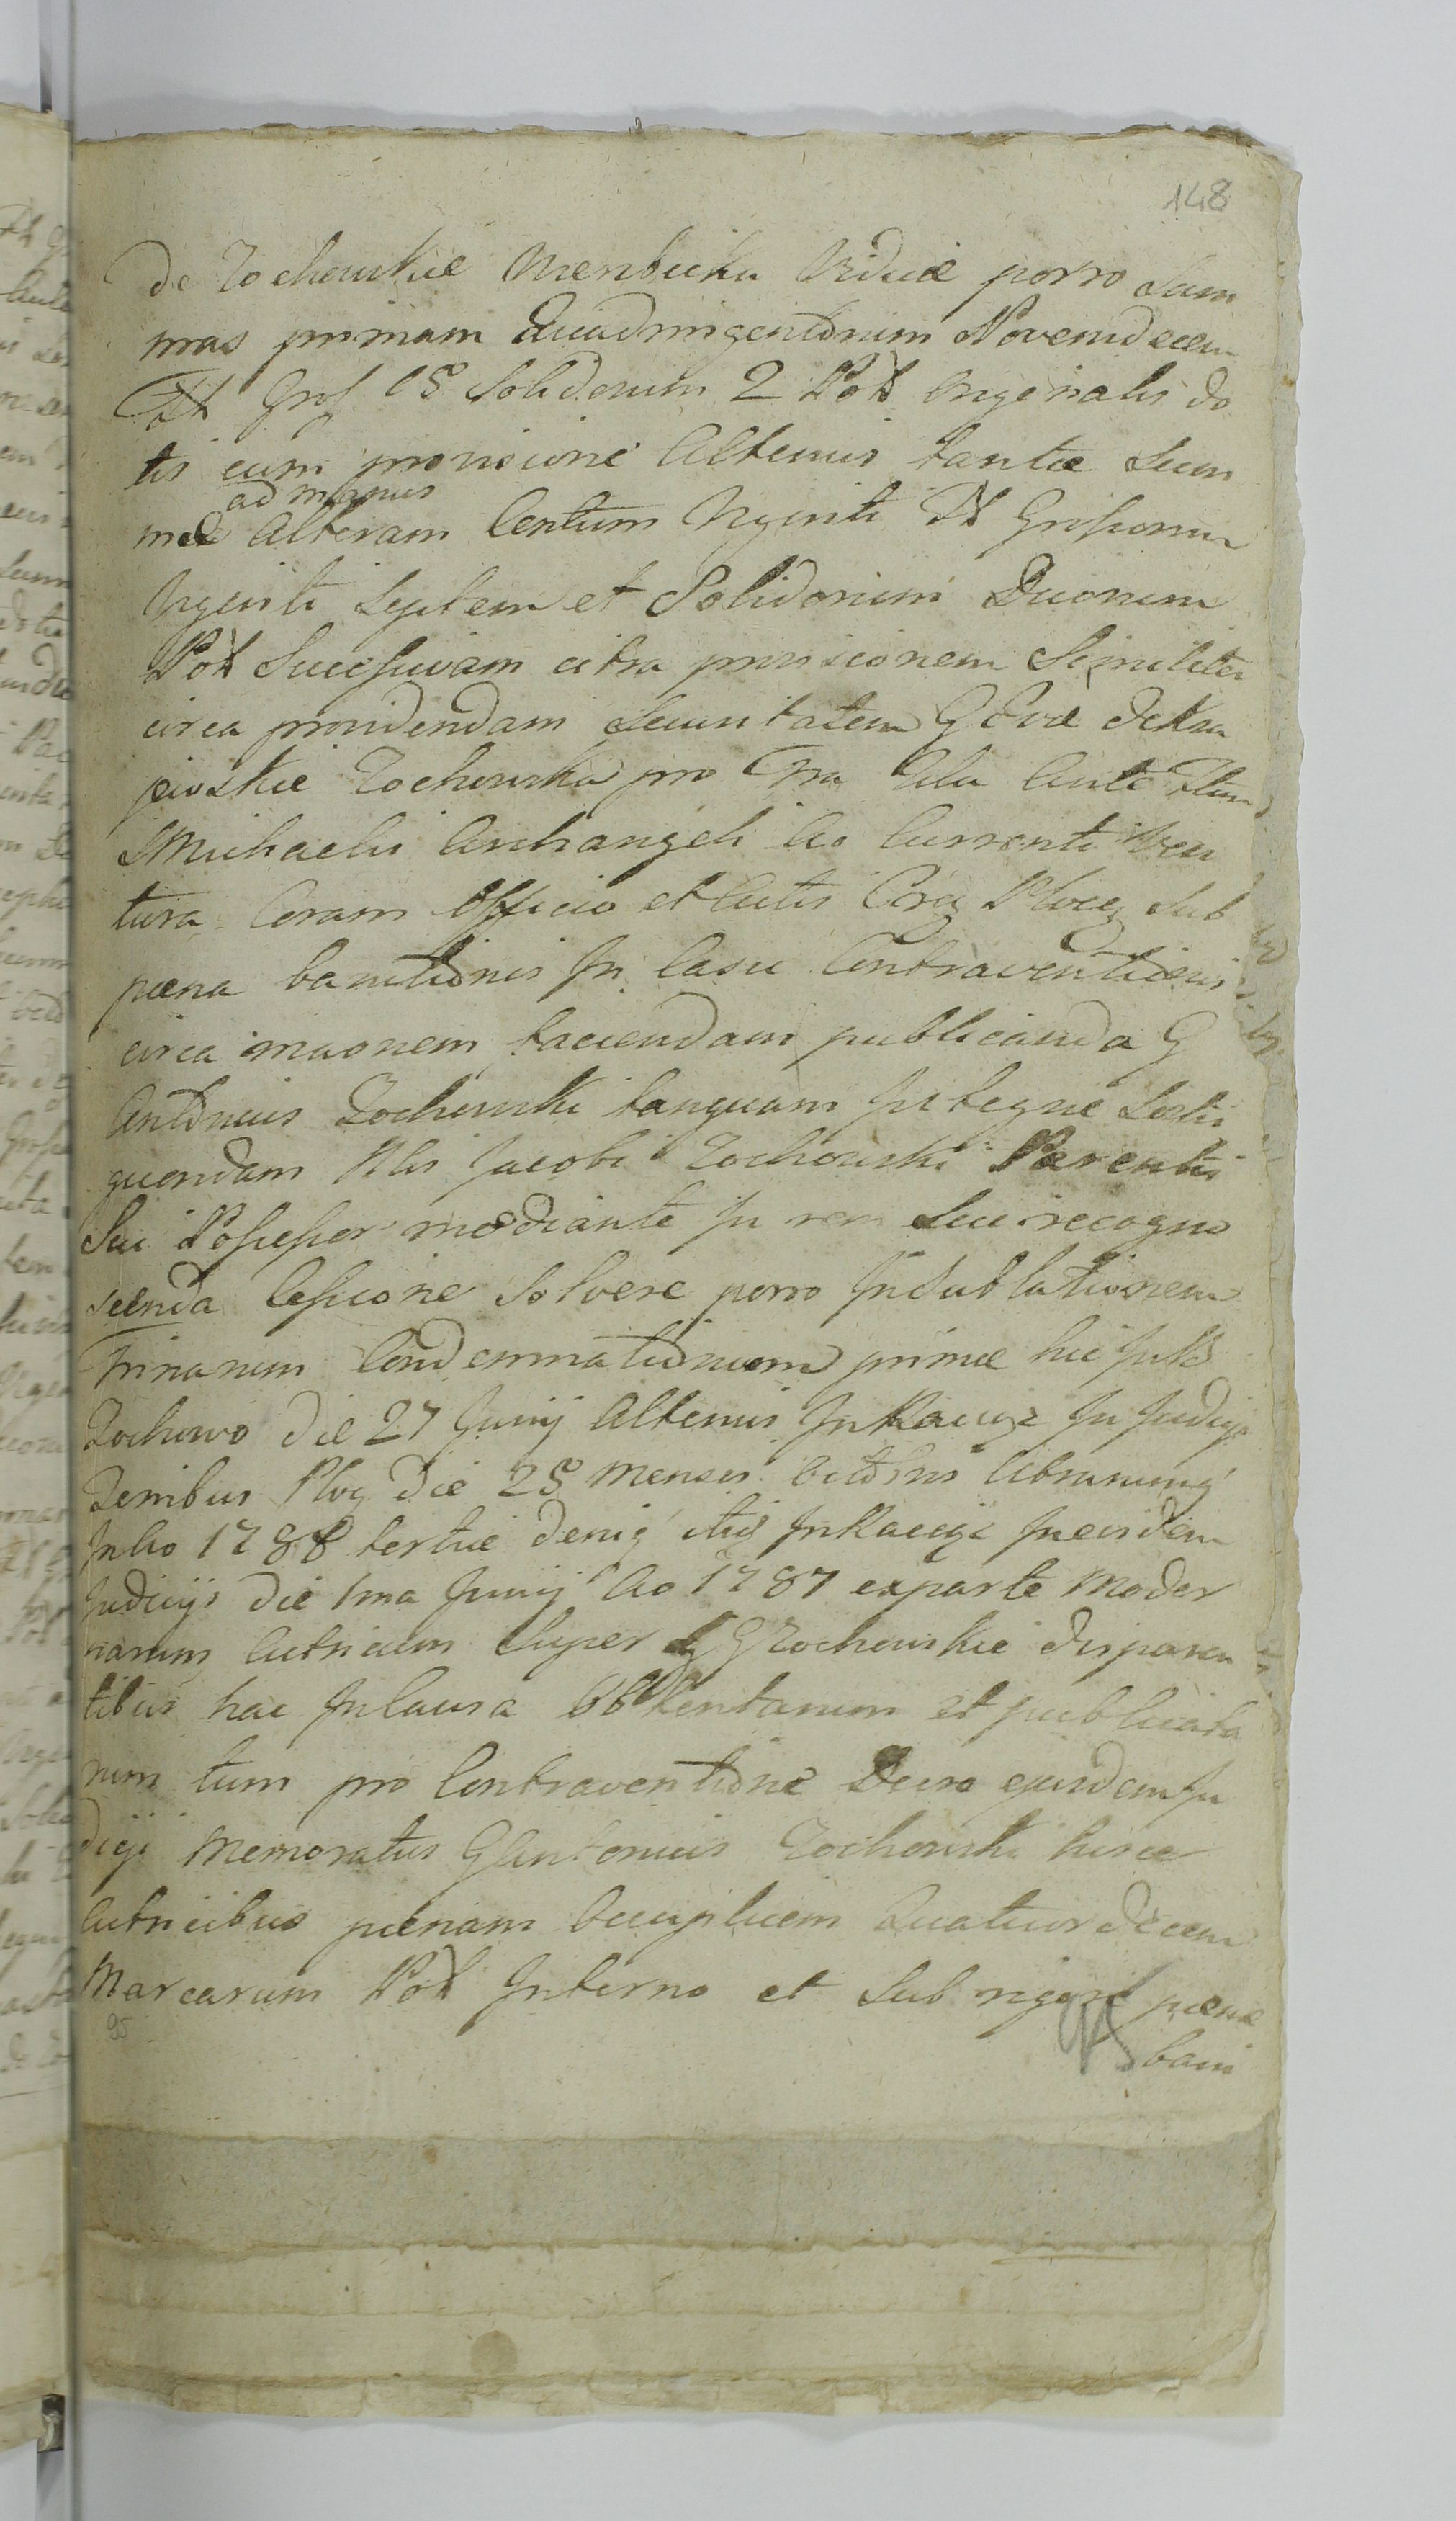 148
de Zochowskie Wierzbicka Viduæ porro Sum
mas primam Quadringentorum Novemdecem
Fl Gros 18 Solidorum 2 Pol Originalis do
tis cum provisione Alterius tantæ Sum
mæ ad manus Alteram Centum Viginti Fl Grossorum
Viginti Septem et Solidorum Duorum
Pol Successivam citra provisionem Similiter
circa providendam Securitatem G Evæ
Zochowska pro Fra Ante Stum
Michaelis Archangeli Ao Currenti Ven
tura Coram Officio et Actis Cap Ploc Sub
pæna banitionis In Casu Contraventionis
circa faciendam publicanda G
Antonius Zochowski tanquam Integræ Sortis
quondam Nlis Jacobi Zochowski Parentis
Sui Possessor mediante In rem Sui recogno
scenda Cessione Solvere porro In Sublationem
Trinarum Condemnationum primæ hic in
Zochowo die 27 Junij Alterius In Raciąz In Judicijs
Terribus Ploc Die 28 Mensis Ambarum
Ao 1788 tertiæ deniq itid In Raciąz In eisdem
Judicijs die 1ma Junij Ao 1787 exparte Moder
narum Actricum Super GG Zochowskie disparen
tibus hac In Causa Obtentarum et publicata
rum tum pro Contraventione Decro ejusdem Ju
dicij Memoratus G Antonius Zochowski hisce
Actricibus pænam Quatuordecem
Marcarum Pol Interno et Sub rigore pænæ
bani
95
95